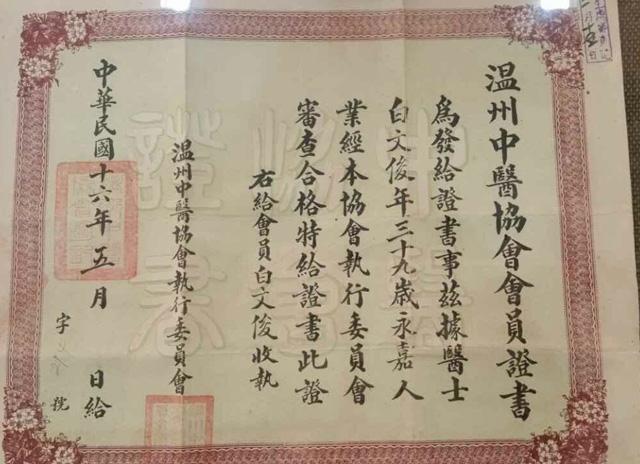 温州中醫協會會員證書
為發給證書事茲據醫士
白文俊年三十九歲永嘉人
業經本協會執行委員會
審查合格特給證書此證
右給會員白文俊收執
温州中醫協會執行委員會
中華民國十六年五月 日給
字 號
中醫
協會
證書